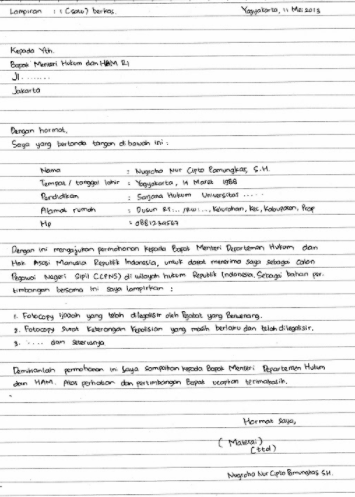 Lampiran : 1 (satu) berkas. Yogyakarta, 11 Mei 2015
Kepada Yth.
Bapak Menteri Hukum dan HAM RI
Jl. ........
Jakarta
Dengan hormat,
Saya yang bertanda tangan di bawah ini :
Nama : Nugroho Nur Cipto Pamungkas, S.H.
Tempat / tanggal lahir : Yogyakarta, 14 Maret 1988
Pendidikan : Sarjana Hukum Universitas .....
Alamat rumah : Dusun RT... /RW..., Kelurahan, Kec, Kabupaten, Prop
Hp :
Dengan ini mengajukan permohonan kepada Bapak Menteri Departemen Hukum dan
Hak Asasi Manusia Republik Indonesia, untuk dapat menerima saya sebagai Calon
Pegawai Negeri Sipil (CPNS) di wilayah hukum Republik Indonesia. Sebagai bahan per-
timbangan bersama ini saya lampirkan :
1. Fotocopy ijazah yang telah dilegalisir oleh Pejabat yang Berwenang.
2. Fotocopy Surat Keterangan Kepolisian yang masih berlaku dan telah dilegalisir.
3. ..... dan seterusnya
Demikianlah permohonan ini saya sampaikan kepada Bapak Menteri Departemen Hukum
dan HAM. Atas perhatian dan pertimbangan Bapak ucapkan terimakasih.
Hormat saya,
( Materai )
(ttd)
Nugroho Nur Cipto Pamungkas, S.H.